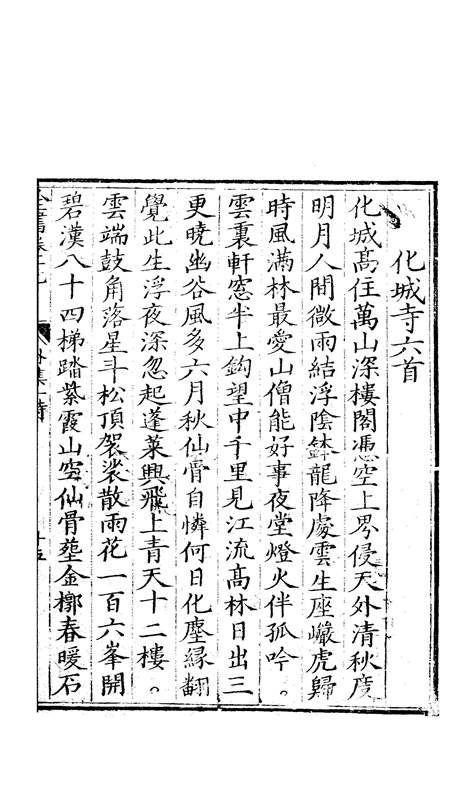 化城寺六首
化城高住萬山深樓閣憑空上界侵天外清秋度
明月人間微雨結浮陰鉢龍降處雲生座巖虎歸
時風滿林最愛山僧能好事夜堂燈火伴孤吟。
雲裏軒窓半上鈎望中千里見江流高林日出三
更曉幽谷風多六月秋仙骨自憐何日化塵緣翻
覺此生浮夜深忽起蓬萊興飛上青天十二樓。
雲端鼓角落星斗松頂袈裟散雨花一百六峯開
碧漢八十四梯踏紫霞山空仙骨塟金槨春暖石